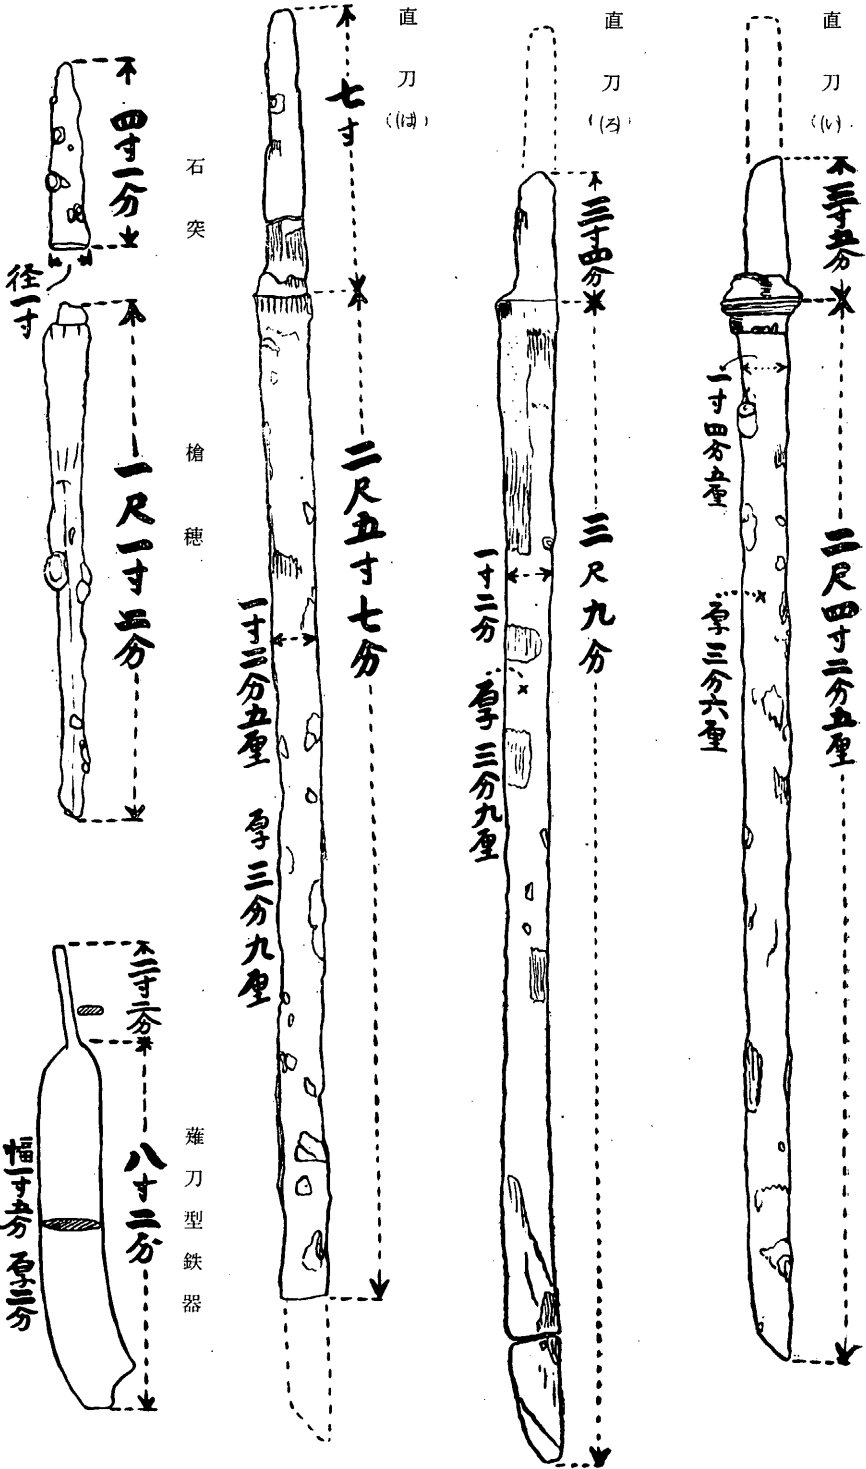 直刀(い)
三寸五分
一寸四分五厘
厚三分六厘
二尺四寸二分五厘
直刀(ろ)
三寸四分
三尺九分
一寸二分
厚三分九厘
直刀(は)
七寸
二尺五寸七分
一寸二分五厘
厚三分九厘
石突
四寸一分
径一寸
槍穂
一尺一寸三分
薙刀型鉄器
二寸二分
八寸二分
幅一寸五分 厚二分